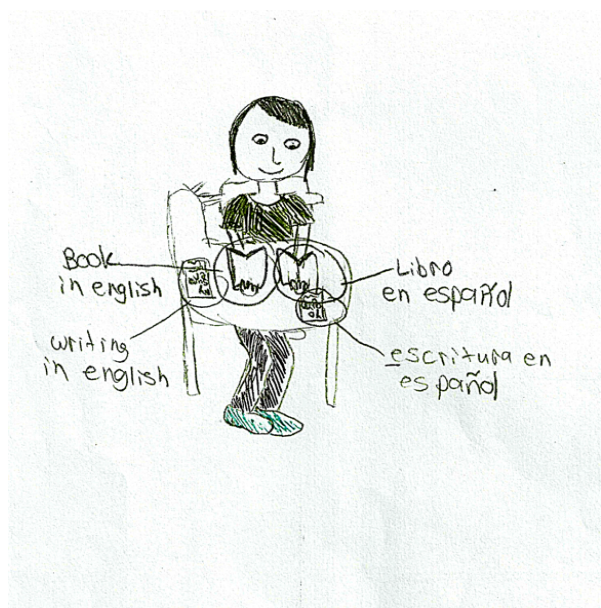 Book
in english
writing
in english
Libro
en español
escritura en
español